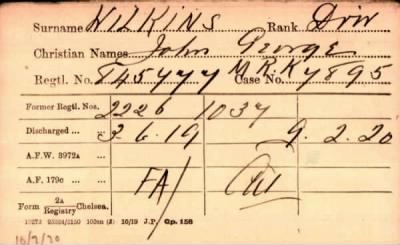 Surname WILKINS Rank Dvr
Christian Names John George
Regtl. No. 845477 Case No. MRK 7895
Former Regtl. Nos. 2226 1034
Discharged ... ... 3.6.19 9.2.20
A.F.W. 3972A ...
A.F. 179c ... FA/
Form 2A Registry Chelsea.
100m (2) 10/19 J.P. Gp. 156
16/2/20